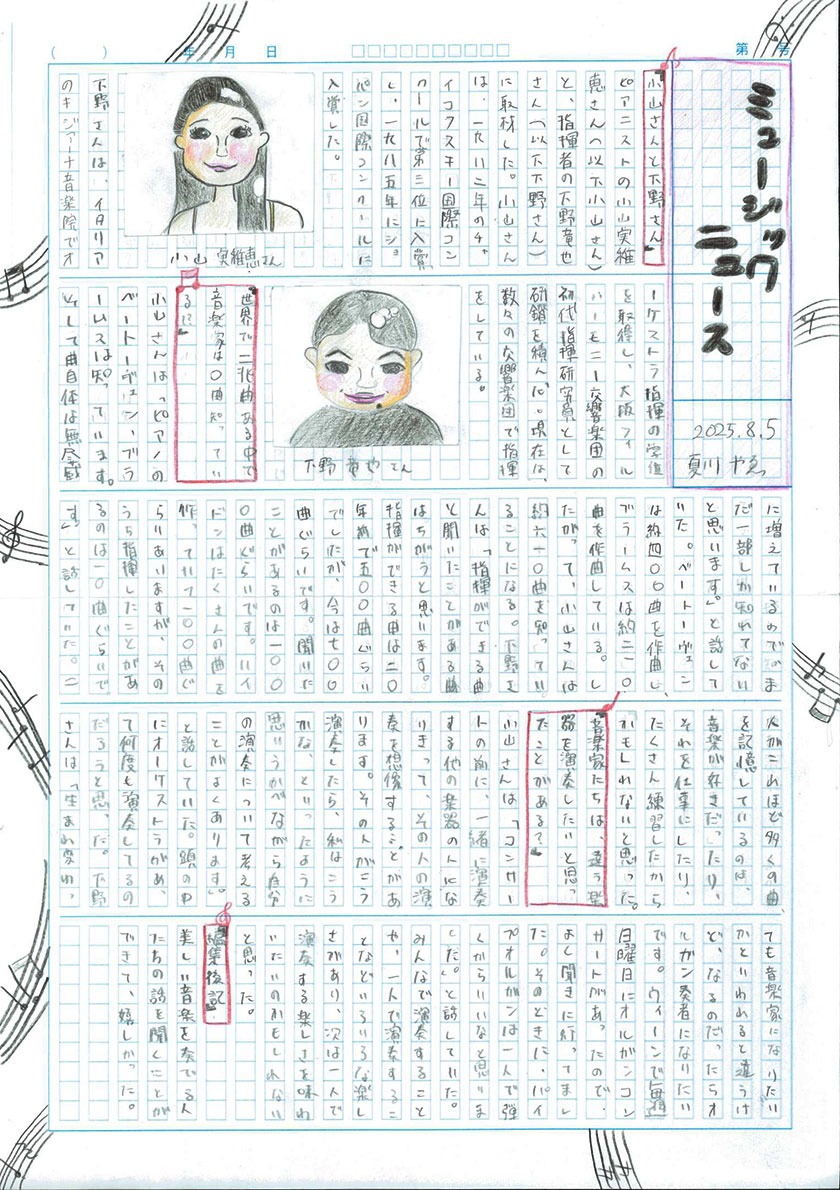 第 号
年 月 日
( )
ミュージック
ニュース
2025.8.5
夏川 やえ
小山さんと下野さん
ピアニストの小山実稚
恵さん(以下小山さん)
と、指揮者の下野竜也
さん(以下下野さん)
に取材した。小山さん
は、一九八二年のチャ
イコフスキー国際コン
クールで第三位に入賞
し、一九八五年にショ
パン国際コンクールに
入賞した。
小山 実稚恵さん
下野さんは、イタリア
のキジアーナ音楽院でオ
ーケストラ指揮の学位
を取得し、大阪フィル
ハーモニー交響楽団の
初代指揮研究員として
研鑽を積んだ。現在は、
数々の交響楽団で指揮
をしている。
下野 竜也さん
世界で二兆曲ある中で
音楽家は〇曲知ってい
る!?
小山さんは「ピアノの
ベートーヴェン、ブラ
ームスは知っています。
そして曲自体は無尽蔵
に増えているのでごま
だ一部しか知れてない
と思います。」と話して
いた。ベートーヴェン
は約四〇〇曲を作曲し、
ブラームスは約二一〇
曲を作曲している。し
たがって、小山さんは
約六一〇曲を知ってい
ることになる。下野さ
んは「指揮ができる曲
と聞いたことがある曲
はちがうと思います。
指揮ができる曲は二〇
年前で五〇〇曲ぐらい
でしたが、今は七〇〇
曲ぐらいです。聞いた
ことがあるのは一〇〇
〇曲ぐらいです。ハイ
ドンはたくさんの曲を
作っていて一〇〇曲ぐ
らいありますが、その
うち指揮したことがあ
るのは一〇曲ぐらいで
す」と話していた。二
人がこれほど多くの曲
を記憶しているのは、
音楽が好きだったり、
それを仕事にしたり、
たくさん練習したから
かもしれないと思った。
音楽家たちは、違う楽
器を演奏したいと思っ
たことがある?
小山さんは「コンサー
トの前に、一緒に演奏
する他の楽器の人にな
りきって、その人の演
奏を想像することがあ
ります。その人がこう
演奏したら、私はこう
かな、といったように
思いうかべながら自分
の演奏について考える
ことがよくあります。」
と話していた。頭の中
にオーケストラがあっ
て何度も演奏してるの
だろうと思った。下野
さんは「生まれ変わっ
ても音楽家になりたい
かといわれると違うけ
ど、なるのだったらオ
ルガン奏者になりたい
です。ウィーンで毎週
日曜日にオルガンコン
サートがあったので、
よく聞きに行ってまし
た。そのときに、パイ
プオルガンは一人で弾
くからいいなと思いま
した。」と話していた。
みんなで演奏すること
や、一人で演奏するこ
となどいろいろな楽し
さがあり、次は一人で
演奏する楽しさを味わ
いたいのかもしれない
と思った。
編集後記
美しい音楽を奏でる人
たちの話を聞くことが
できて、嬉しかった。